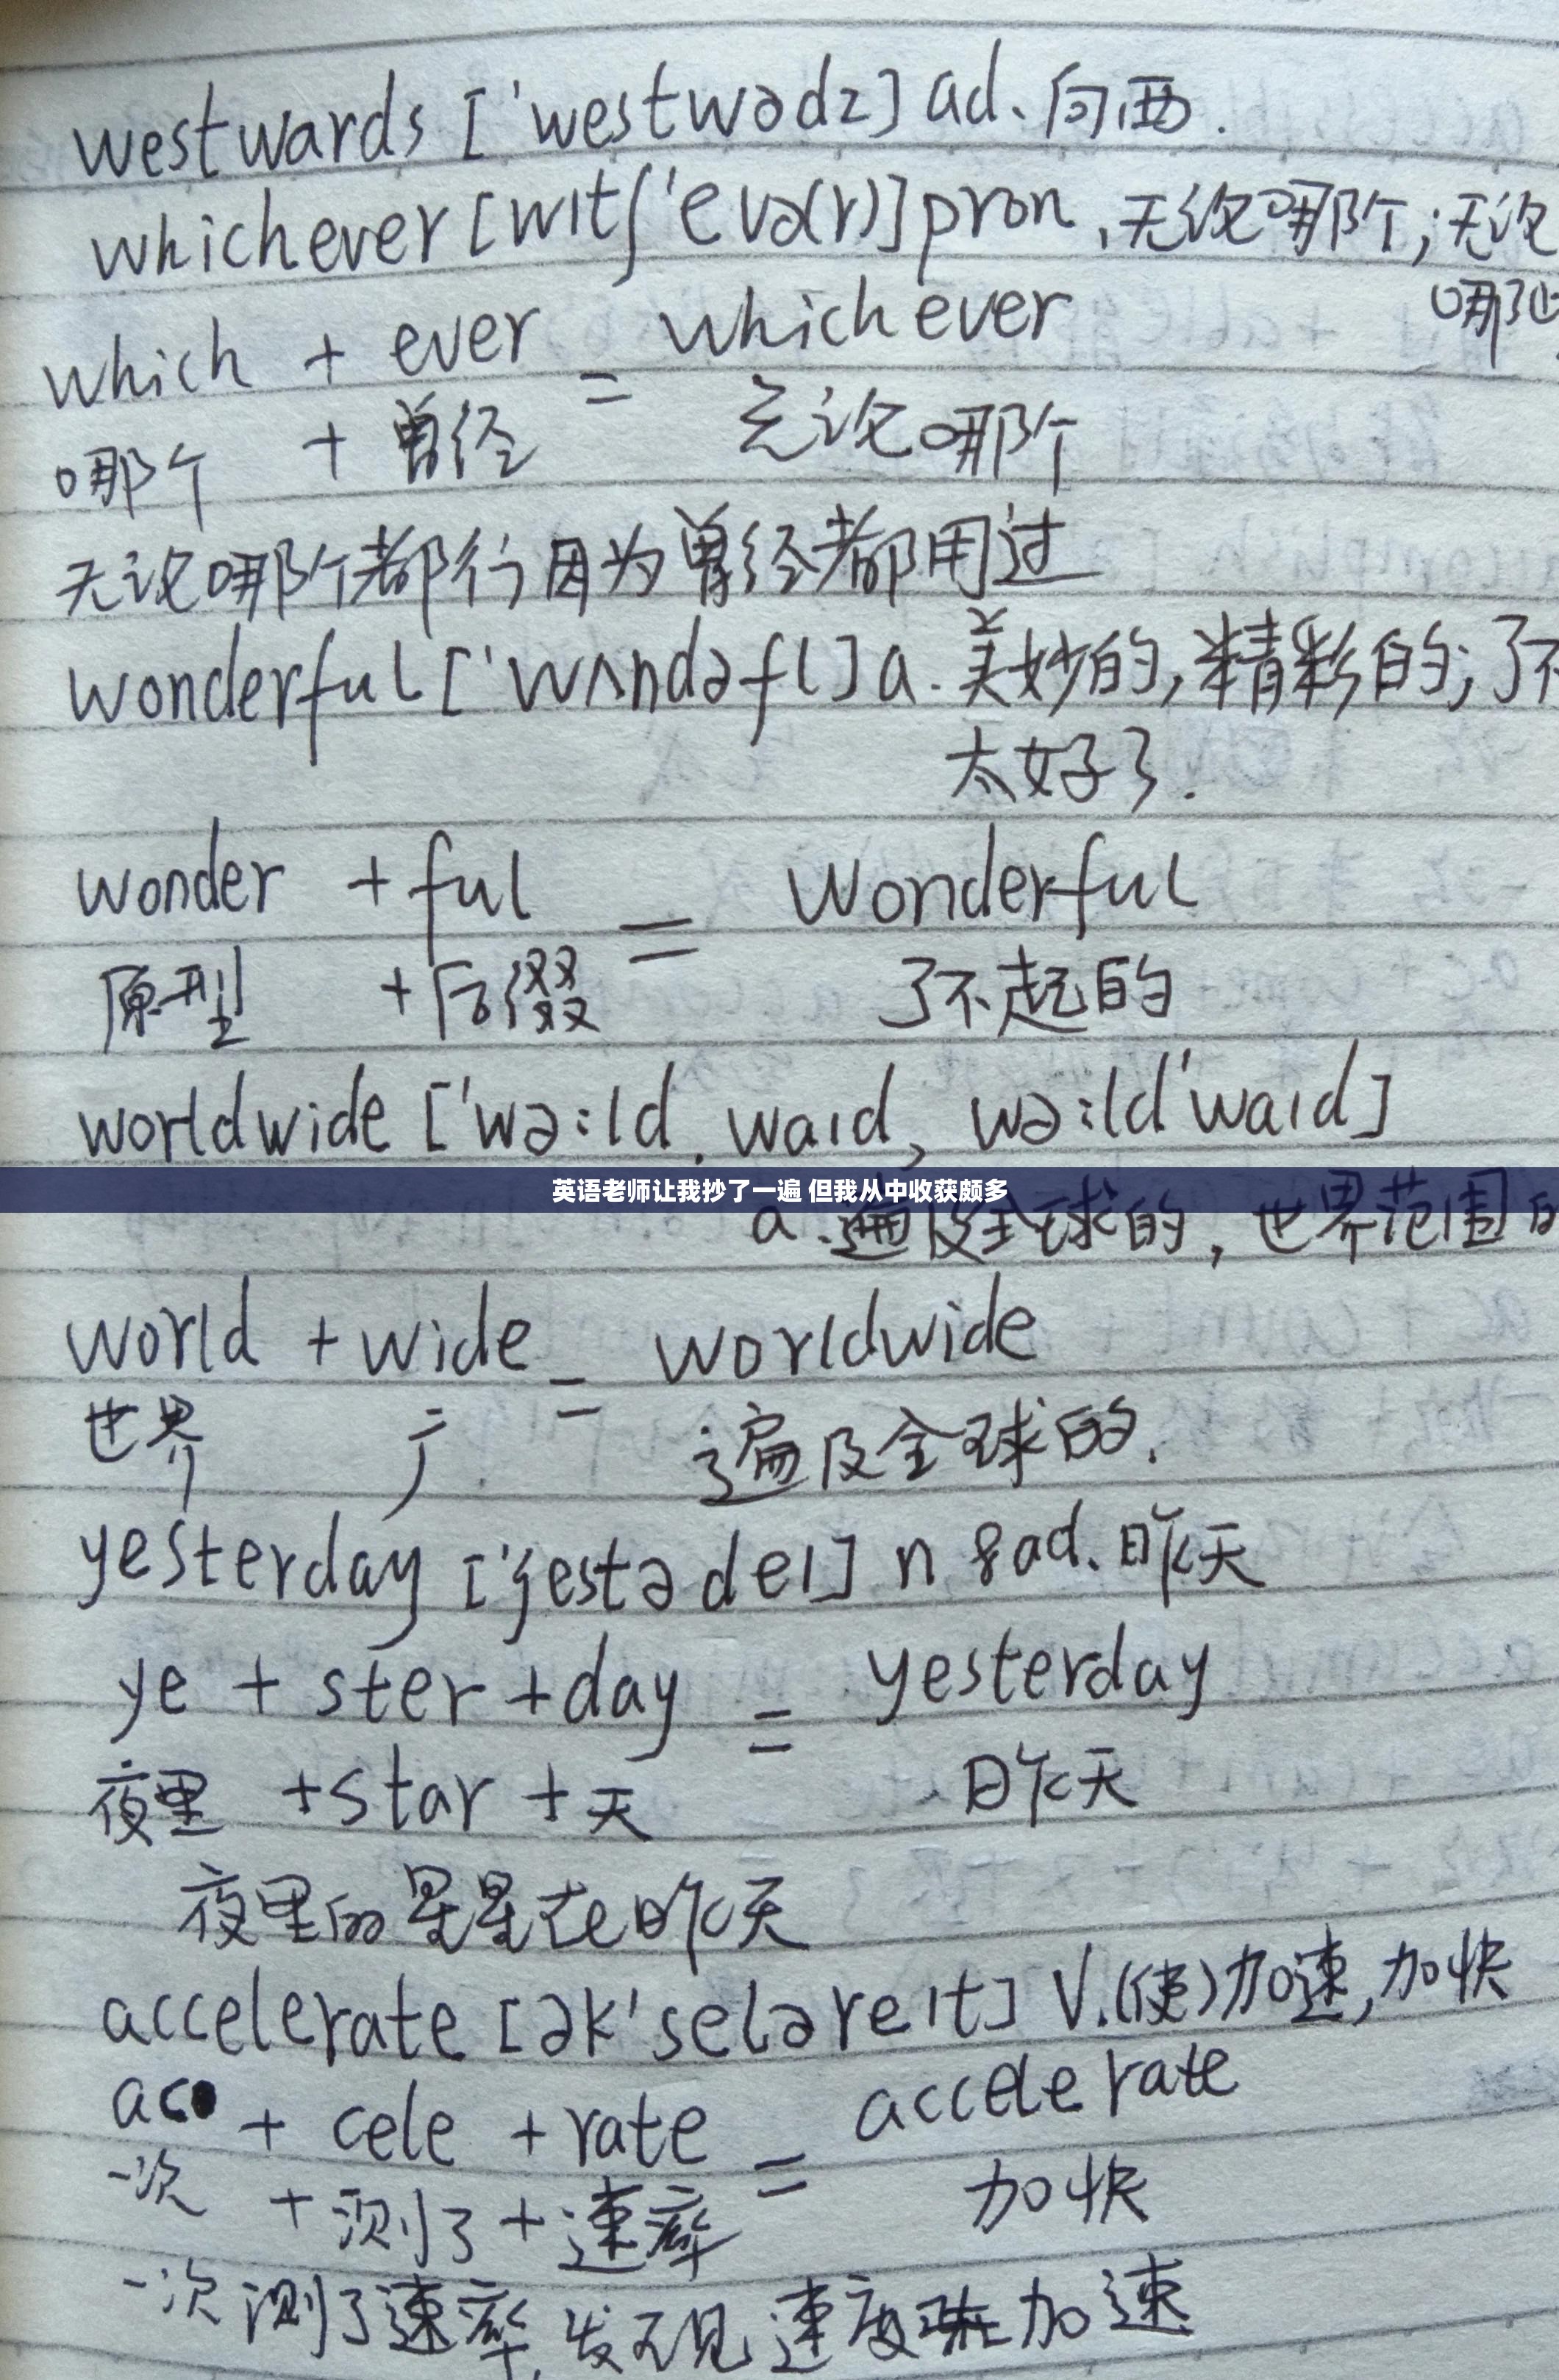 westwards ['westwədz] ad. 向西.
whichever [wɪtʃ'evə(r)] pron. 无论哪个;无论
哪些
which + ever = whichever
哪个 + 曾经 无论哪个
无论哪个都行因为曾经都用过
wonderful ['wʌndəfl] a. 美妙的,精彩的;了不
太好了.
wonder + ful = wonderful
原型 + 后缀 了不起的
worldwide ['wə:ld.waɪd, wə:ld'waɪd]
英语老师让我抄了一遍 但我从中收获颇多
a. 遍及全球的, 世界范围的
world + wide = worldwide
世界 广 遍及全球的.
yesterday ['jestədeɪ] n &ad. 昨天
ye + ster + day = yesterday
夜里 + star + 天 昨天
夜里的星星在昨天
accelerate [ək'seləreɪt] V.(使)加速,加快
ac + cele + rate = accelerate
一次 + 测了 + 速率 加快
一次测了速率,发现速度在加速